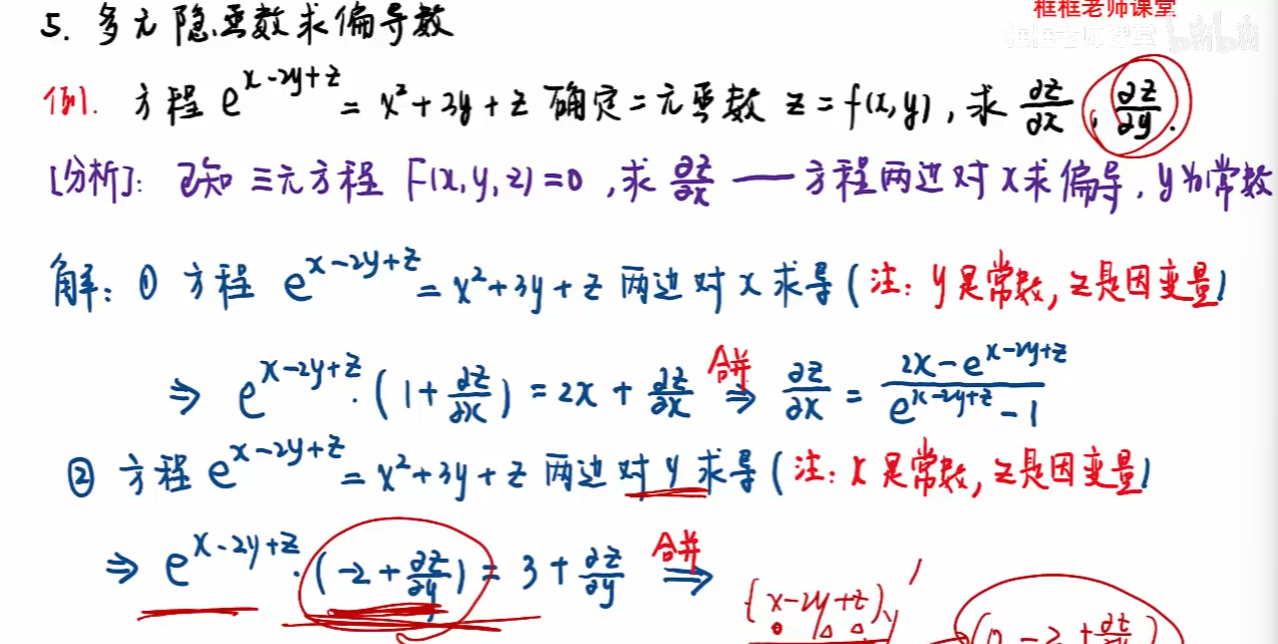 框框老师课堂
5. 多元隐函数求偏导数
框框老师课堂 bilibili
例. 方程 e^{x-2y+z} = x²+3y+z 确定二元函数 z=f(x,y), 求 ∂z/∂x, ∂z/∂y.
[分析]: 已知三元方程 F(x,y,z)=0, 求 ∂z/∂x — 方程两边对x求偏导, y为常数
解: ① 方程 e^{x-2y+z} = x²+3y+z 两边对x求导 (注: y是常数, z是因变量)
⇒ e^{x-2y+z}·(1+∂z/∂x) = 2x+∂z/∂x 合并 ⇒ ∂z/∂x = (2x-e^{x-2y+z})/(e^{x-2y+z}-1)
② 方程 e^{x-2y+z} = x²+3y+z 两边对y求导 (注: x是常数, z是因变量)
⇒ e^{x-2y+z}·(-2+∂z/∂y) = 3+∂z/∂y 合并 ⇒
(x-2y+z)'_y
(0-2+∂z/∂y)